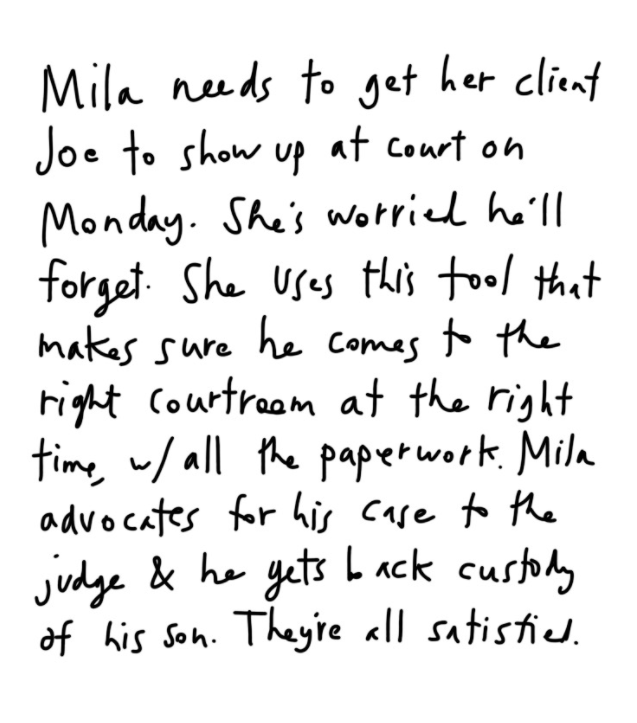 Mila needs to get her client
Joe to show up at court on
Monday. She's worried he'll
forget. She uses this tool that
makes sure he comes to the
right courtroom at the right
time, w/ all the paperwork. Mila
advocates for his case to the
judge & he gets back custody
of his son. They're all satisfied.